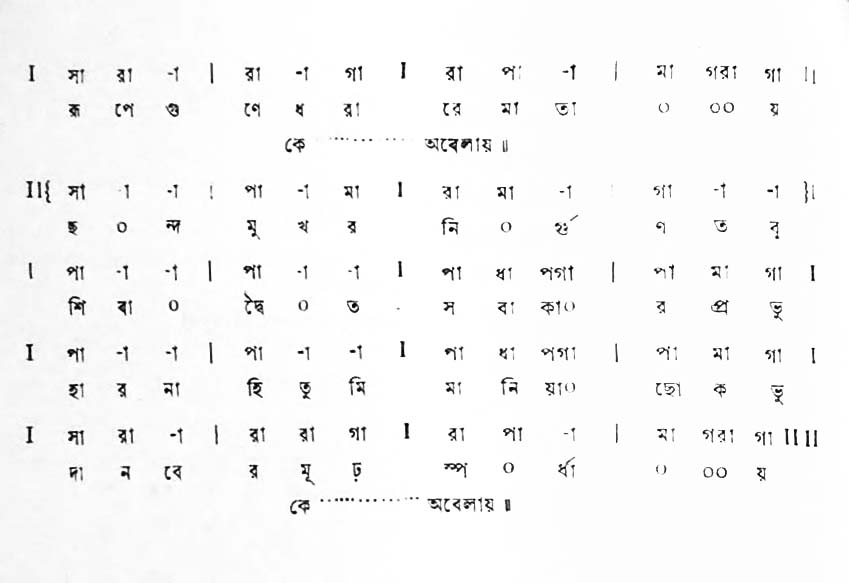 I সা রা -া | রা -া গা I রা পা -া | মা গরা গা II
রূ পে গু ণে ধ রা রে মা তা ০ ০০ য়
কে ............ অবেলায় ॥
II{ সা -া -া | পা -া মা I রা মা -া | গা -া -া }I
ছ ০ ন্দ মু খ র নি ০ র্গু ণ ত বু
I পা -া -া | পা -া -া I পা ধা পগা | পা মা গা I
শি বা ০ দ্বৈ ০ ত স বা কা০ র প্র ভু
I পা -া -া | পা -া -া I পা ধা পগা | পা মা গা I
হা র না হি তু মি মা নি য়া০ ছো ক ভু
I সা রা -া | রা রা গা I রা পা -া | মা গরা গা II II
দা ন বে র মূ ঢ় স্প ০ র্ধা ০ ০০ য়
কে .................. অবেলায় ॥